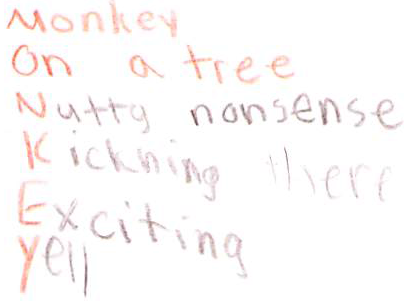 Monkey
On a tree
Nutty nonsense
Kickning there
Exciting
Yell